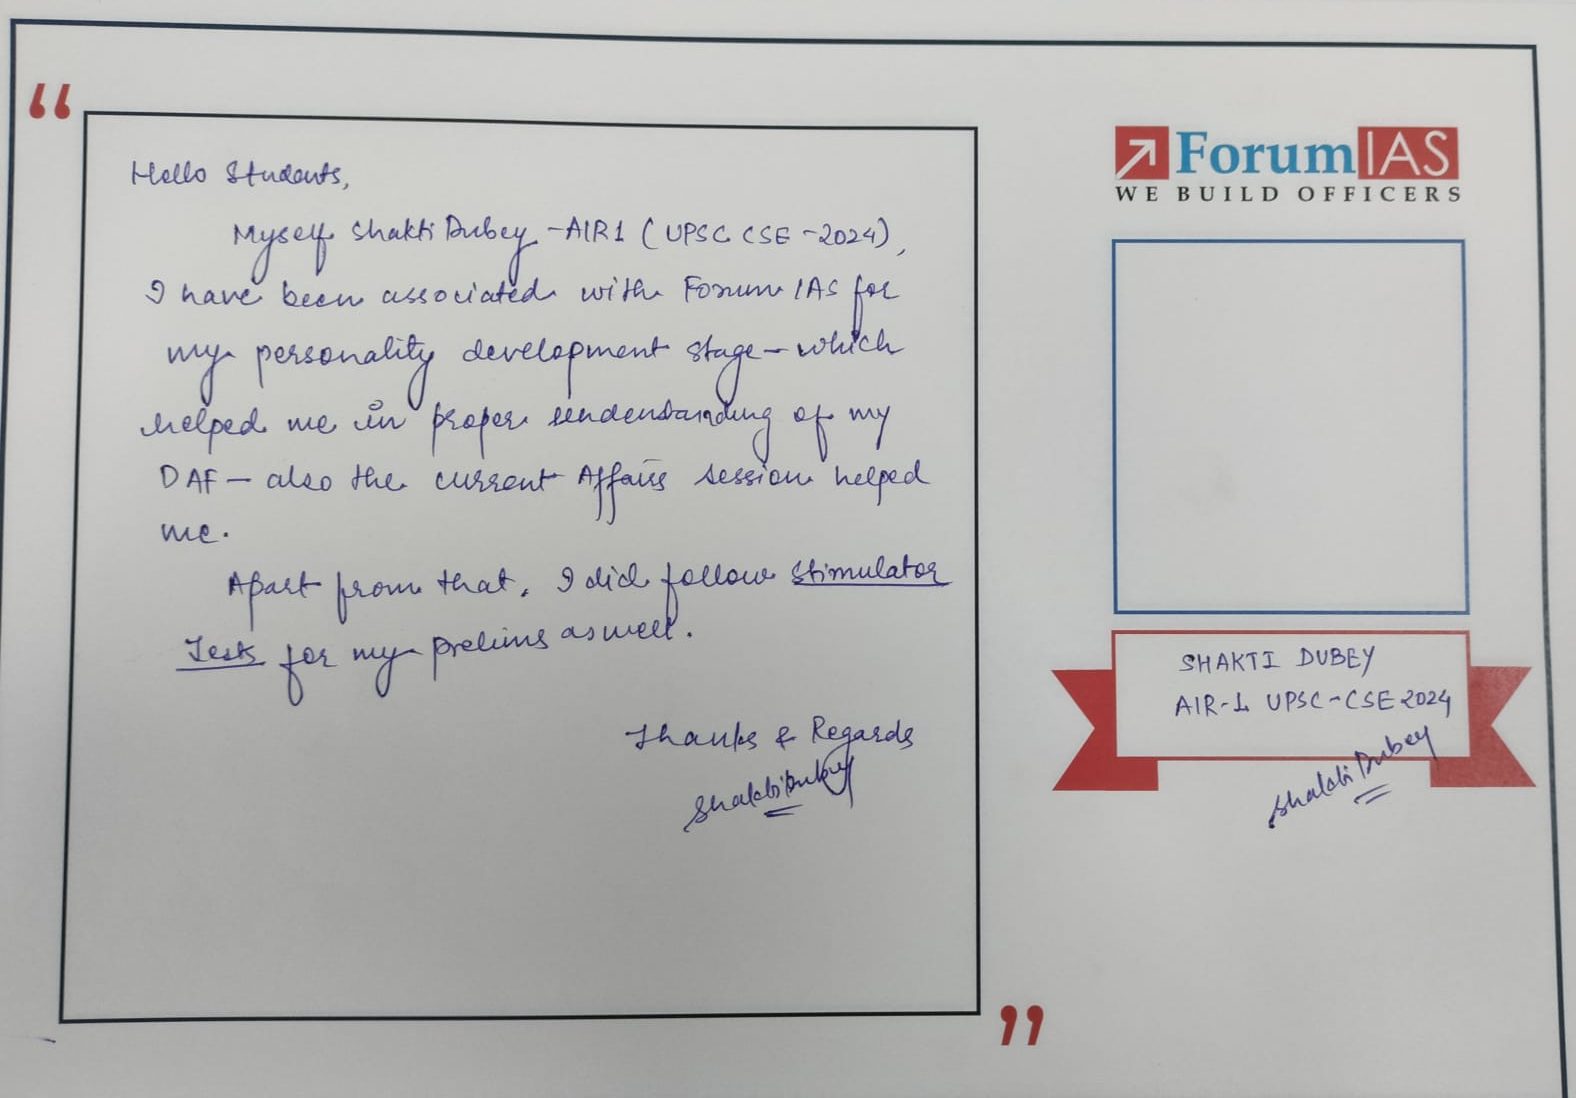 “
Hello Students,
Myself Shakti Dubey - AIR 1 (UPSC CSE - 2024),
I have been associated with Forum IAS for
my personality development stage - which
helped me in proper understanding of my
DAF - also the current Affairs session helped
me.
Apart from that, I did follow Stimulator
Tests for my prelims as well.
Thanks & Regards
Shakti Dubey
”
ForumIAS
WE BUILD OFFICERS
SHAKTI DUBEY
AIR-1 UPSC-CSE 2024
Shakti Dubey